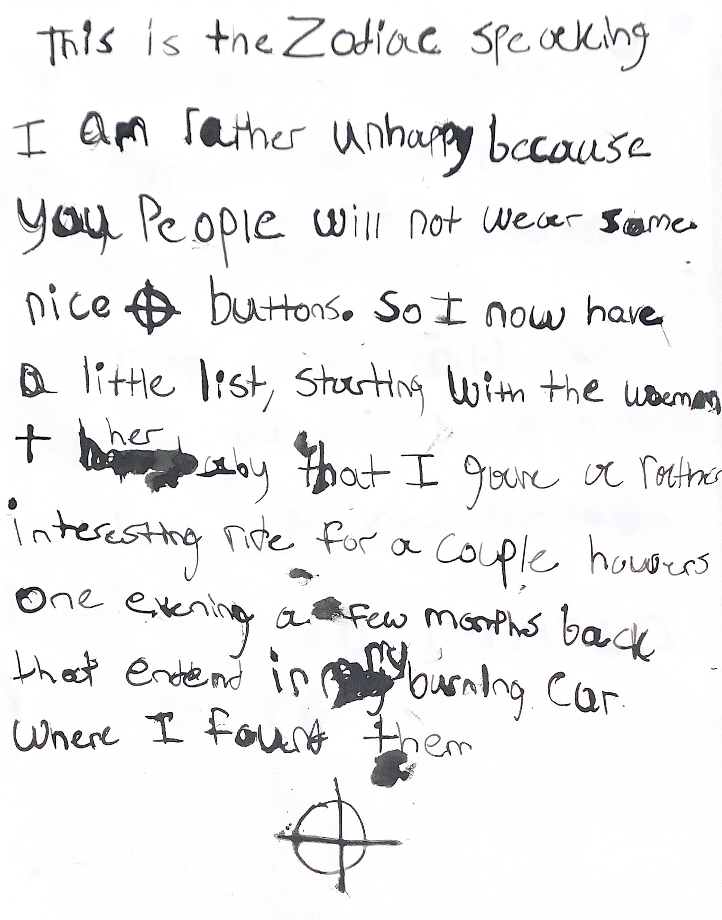 This is the Zodiac speaking
I am rather unhappy because
you People will not wear some
nice ⌖ buttons. So I now have
a little list, starting With the woeman
+ her baby that I gave a rather
interesting ride for a couple howers
One evening a few months back
that endend in my burning car
Where I found them